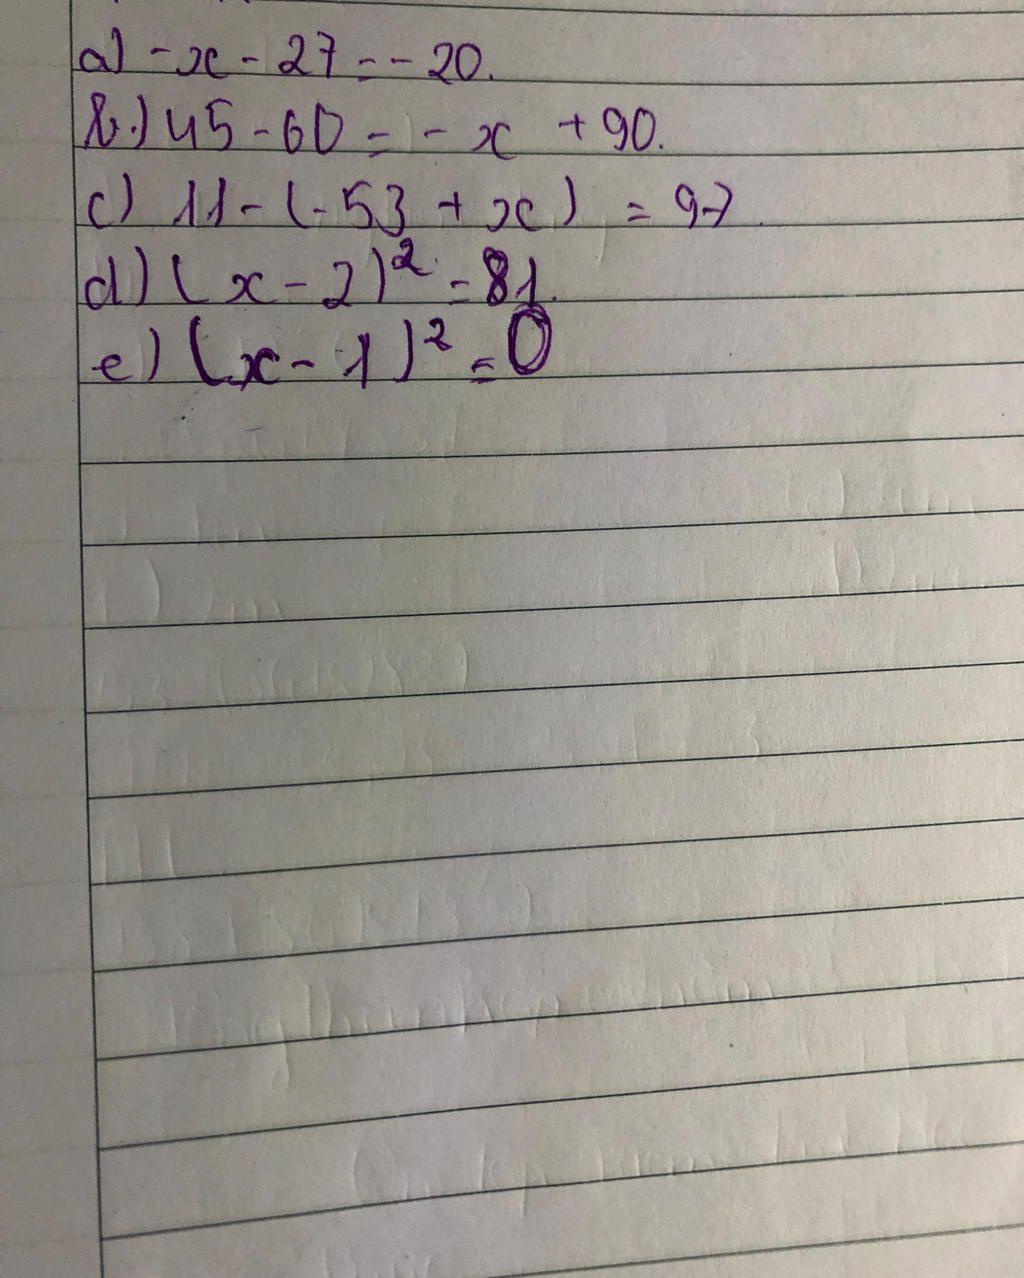 a) -x - 27 = - 20.
b.) 45 - 60 = - x + 90.
c) 11 - (- 53 + x) = 97.
d) (x - 2)² = 81.
e) (x - 1)² = 0